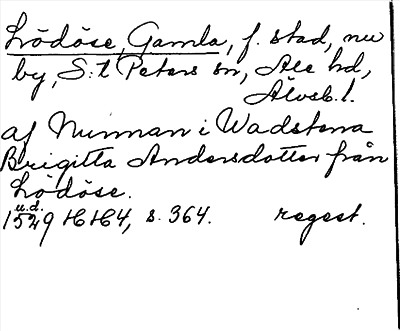 Lödöse, Gamla, f. stad, nu
by, S:t Peters sn, Ale hd,
Älvsb. l.
af Nunnan i Wadstena
Brigitta Andersdotter från
Lödöse.
u.d.
1529 HH4, s. 364. regest.